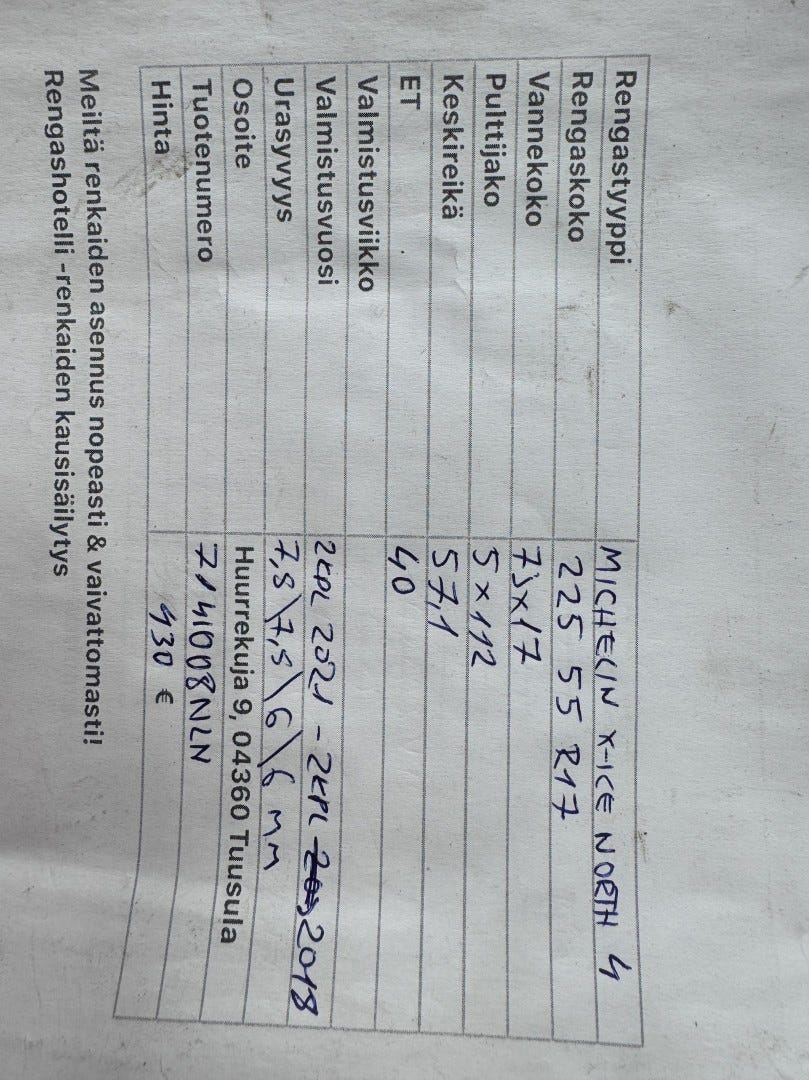 Rengastyyppi MICHELIN X-ICE NORTH 4
Rengaskoko 225 55 R17
Vannekoko 7,5x17
Pulttijako 5x112
Keskireikä 57,1
ET 40
Valmistusviikko
Valmistusvuosi 2KPL 2021 - 2KPL 2018
Urasyvyys 7,5\7,5\6\6 MM
Osoite Huurrekuja 9, 04360 Tuusula
Tuotenumero
Hinta 430 €
Meiltä renkaiden asennus nopeasti & vaivattomasti!
Rengashotelli -renkaiden kausisäilytys